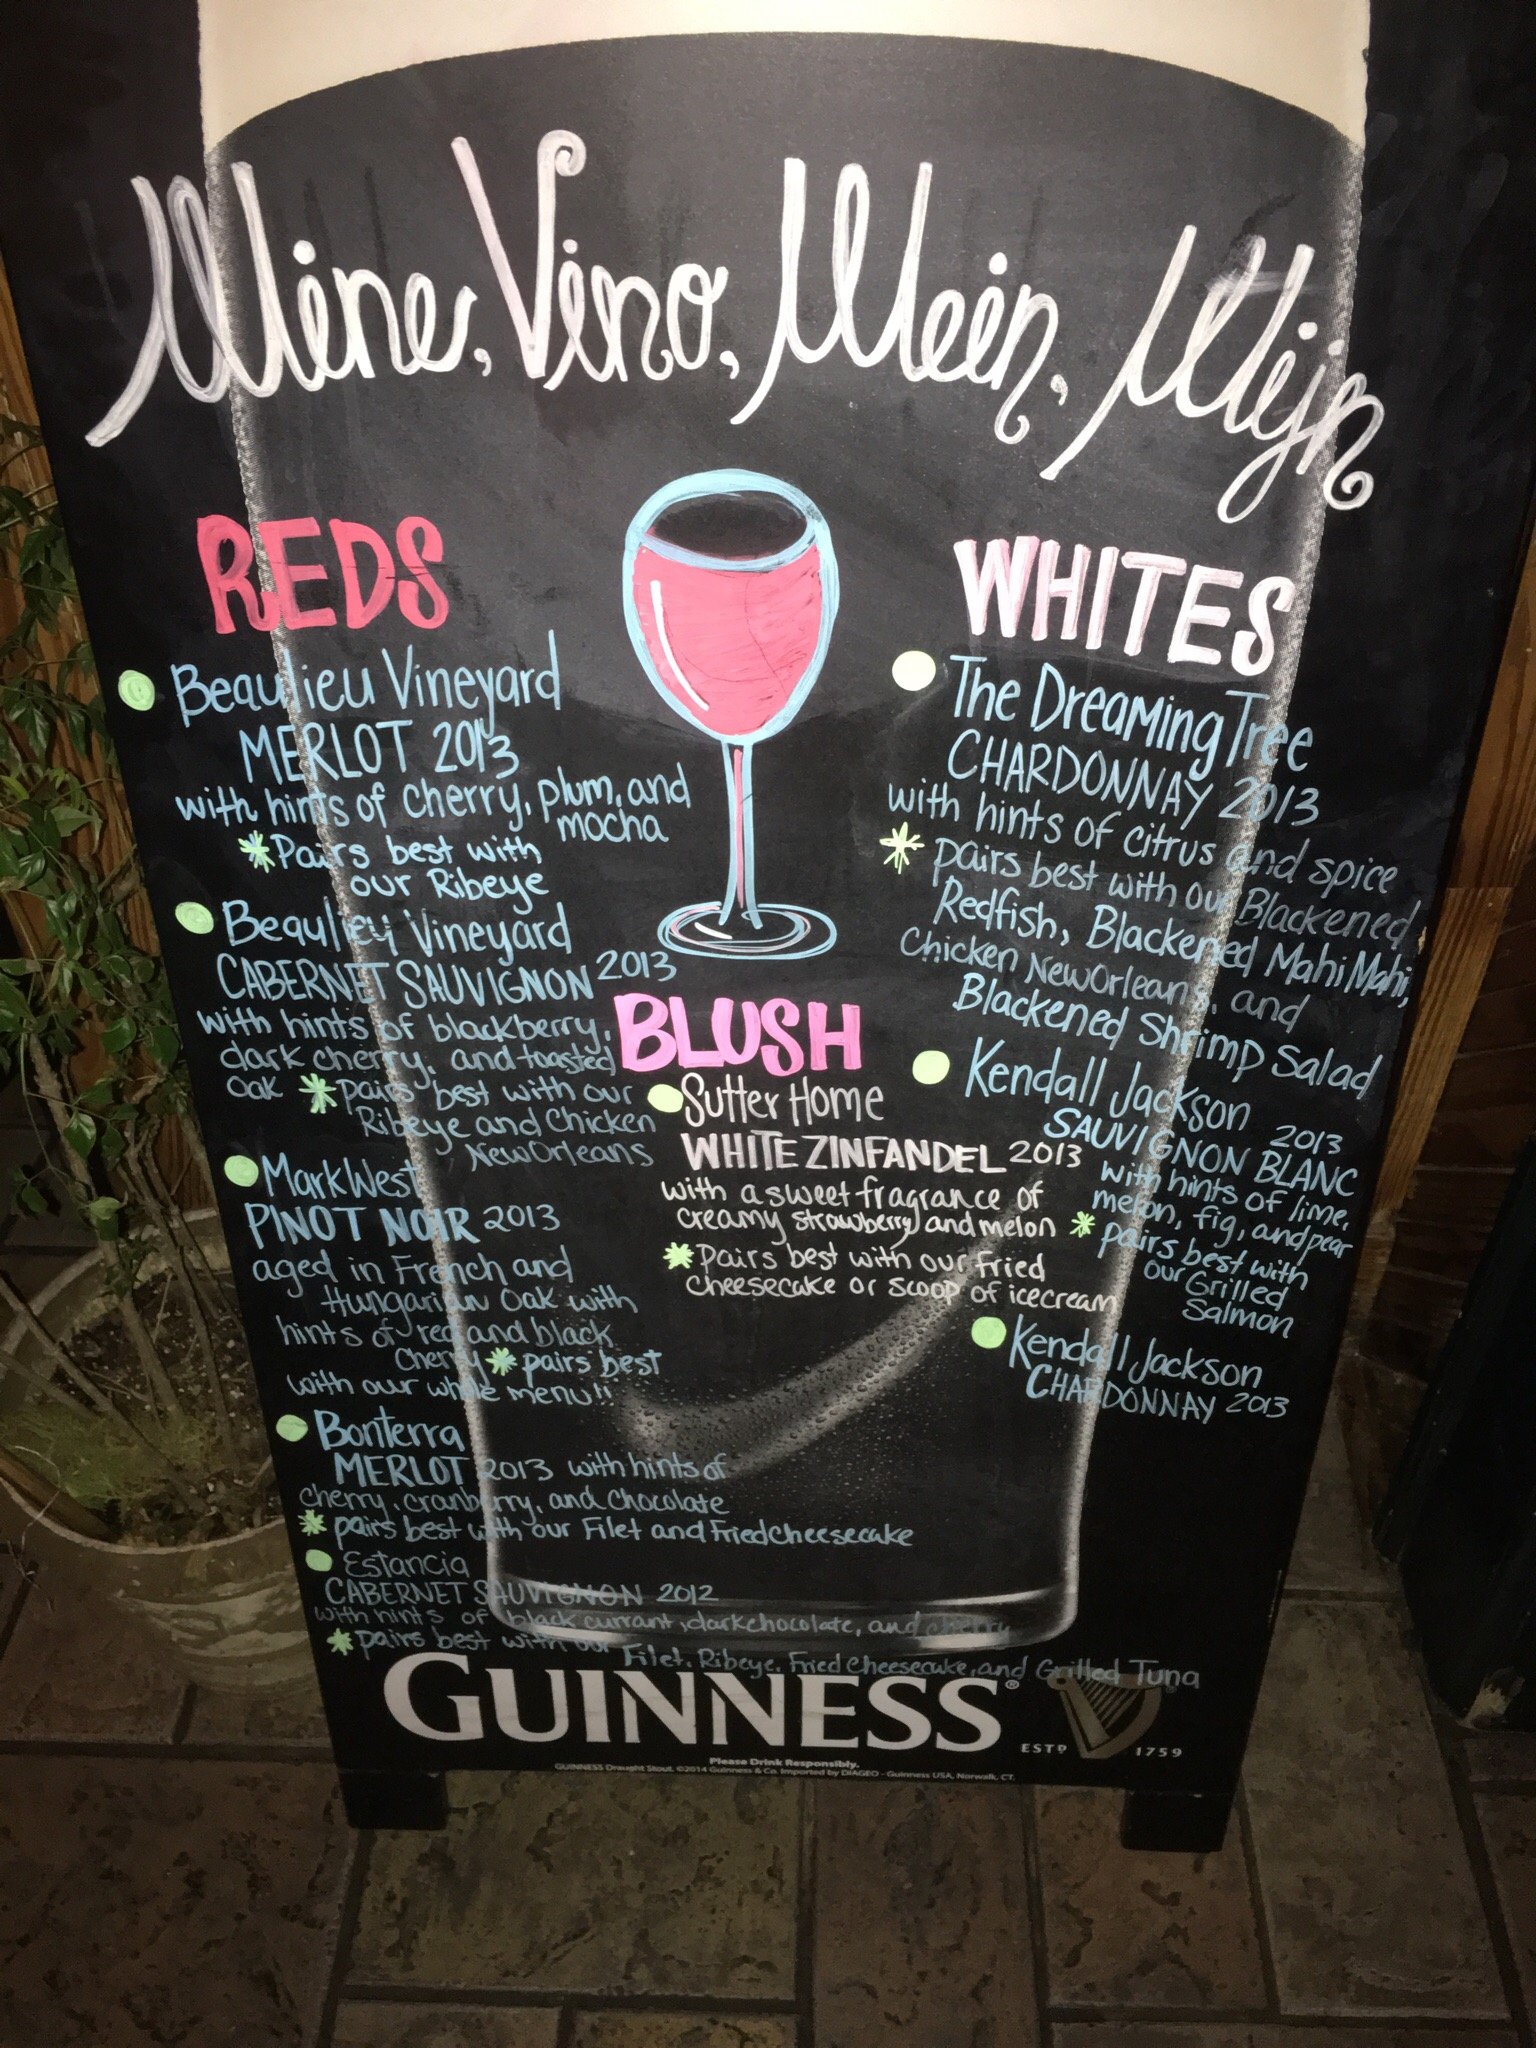 Wine, Vino, Wein, Wijn
REDS
Beaulieu Vineyard
MERLOT 2013
with hints of cherry, plum, and
mocha
*Pairs best with
our Ribeye
Beaulieu Vineyard
CABERNET SAUVIGNON 2013
with hints of blackberry,
dark cherry, and toasted
oak *pairs best with our
Ribeye and Chicken
New Orleans
Mark West
PINOT NOIR 2013
aged in French and
Hungarian Oak with
hints of red and black
Cherry *pairs best
with our whole menu!!
Bonterra
MERLOT 2013 with hints of
cherry, cranberry, and Chocolate
*pairs best with our Filet and Fried Cheesecake
Estancia
CABERNET SAUVIGNON 2012
with hints of black currant, dark chocolate, and cherry
*pairs best with our Filet, Ribeye, Fried Cheesecake, and Grilled Tuna
BLUSH
Sutter Home
WHITE ZINFANDEL 2013
with a sweet fragrance of
creamy strawberry and melon
*Pairs best with our Fried
Cheesecake or scoop of icecream
WHITES
The Dreaming Tree
CHARDONNAY 2013
with hints of citrus and spice
*pairs best with our Blackened
Redfish, Blackened Mahi Mahi,
Chicken New Orleans, and
Blackened Shrimp Salad
Kendall Jackson
SAUVIGNON BLANC 2013
with hints of lime,
melon, fig, and pear
*pairs best with
our Grilled
Salmon
Kendall Jackson
CHARDONNAY 2013
GUINNESS®
ESTD 1759
Please Drink Responsibly.
GUINNESS Draught Stout. ©2014 Guinness & Co. Imported by DIAGEO - Guinness USA, Norwalk, CT.